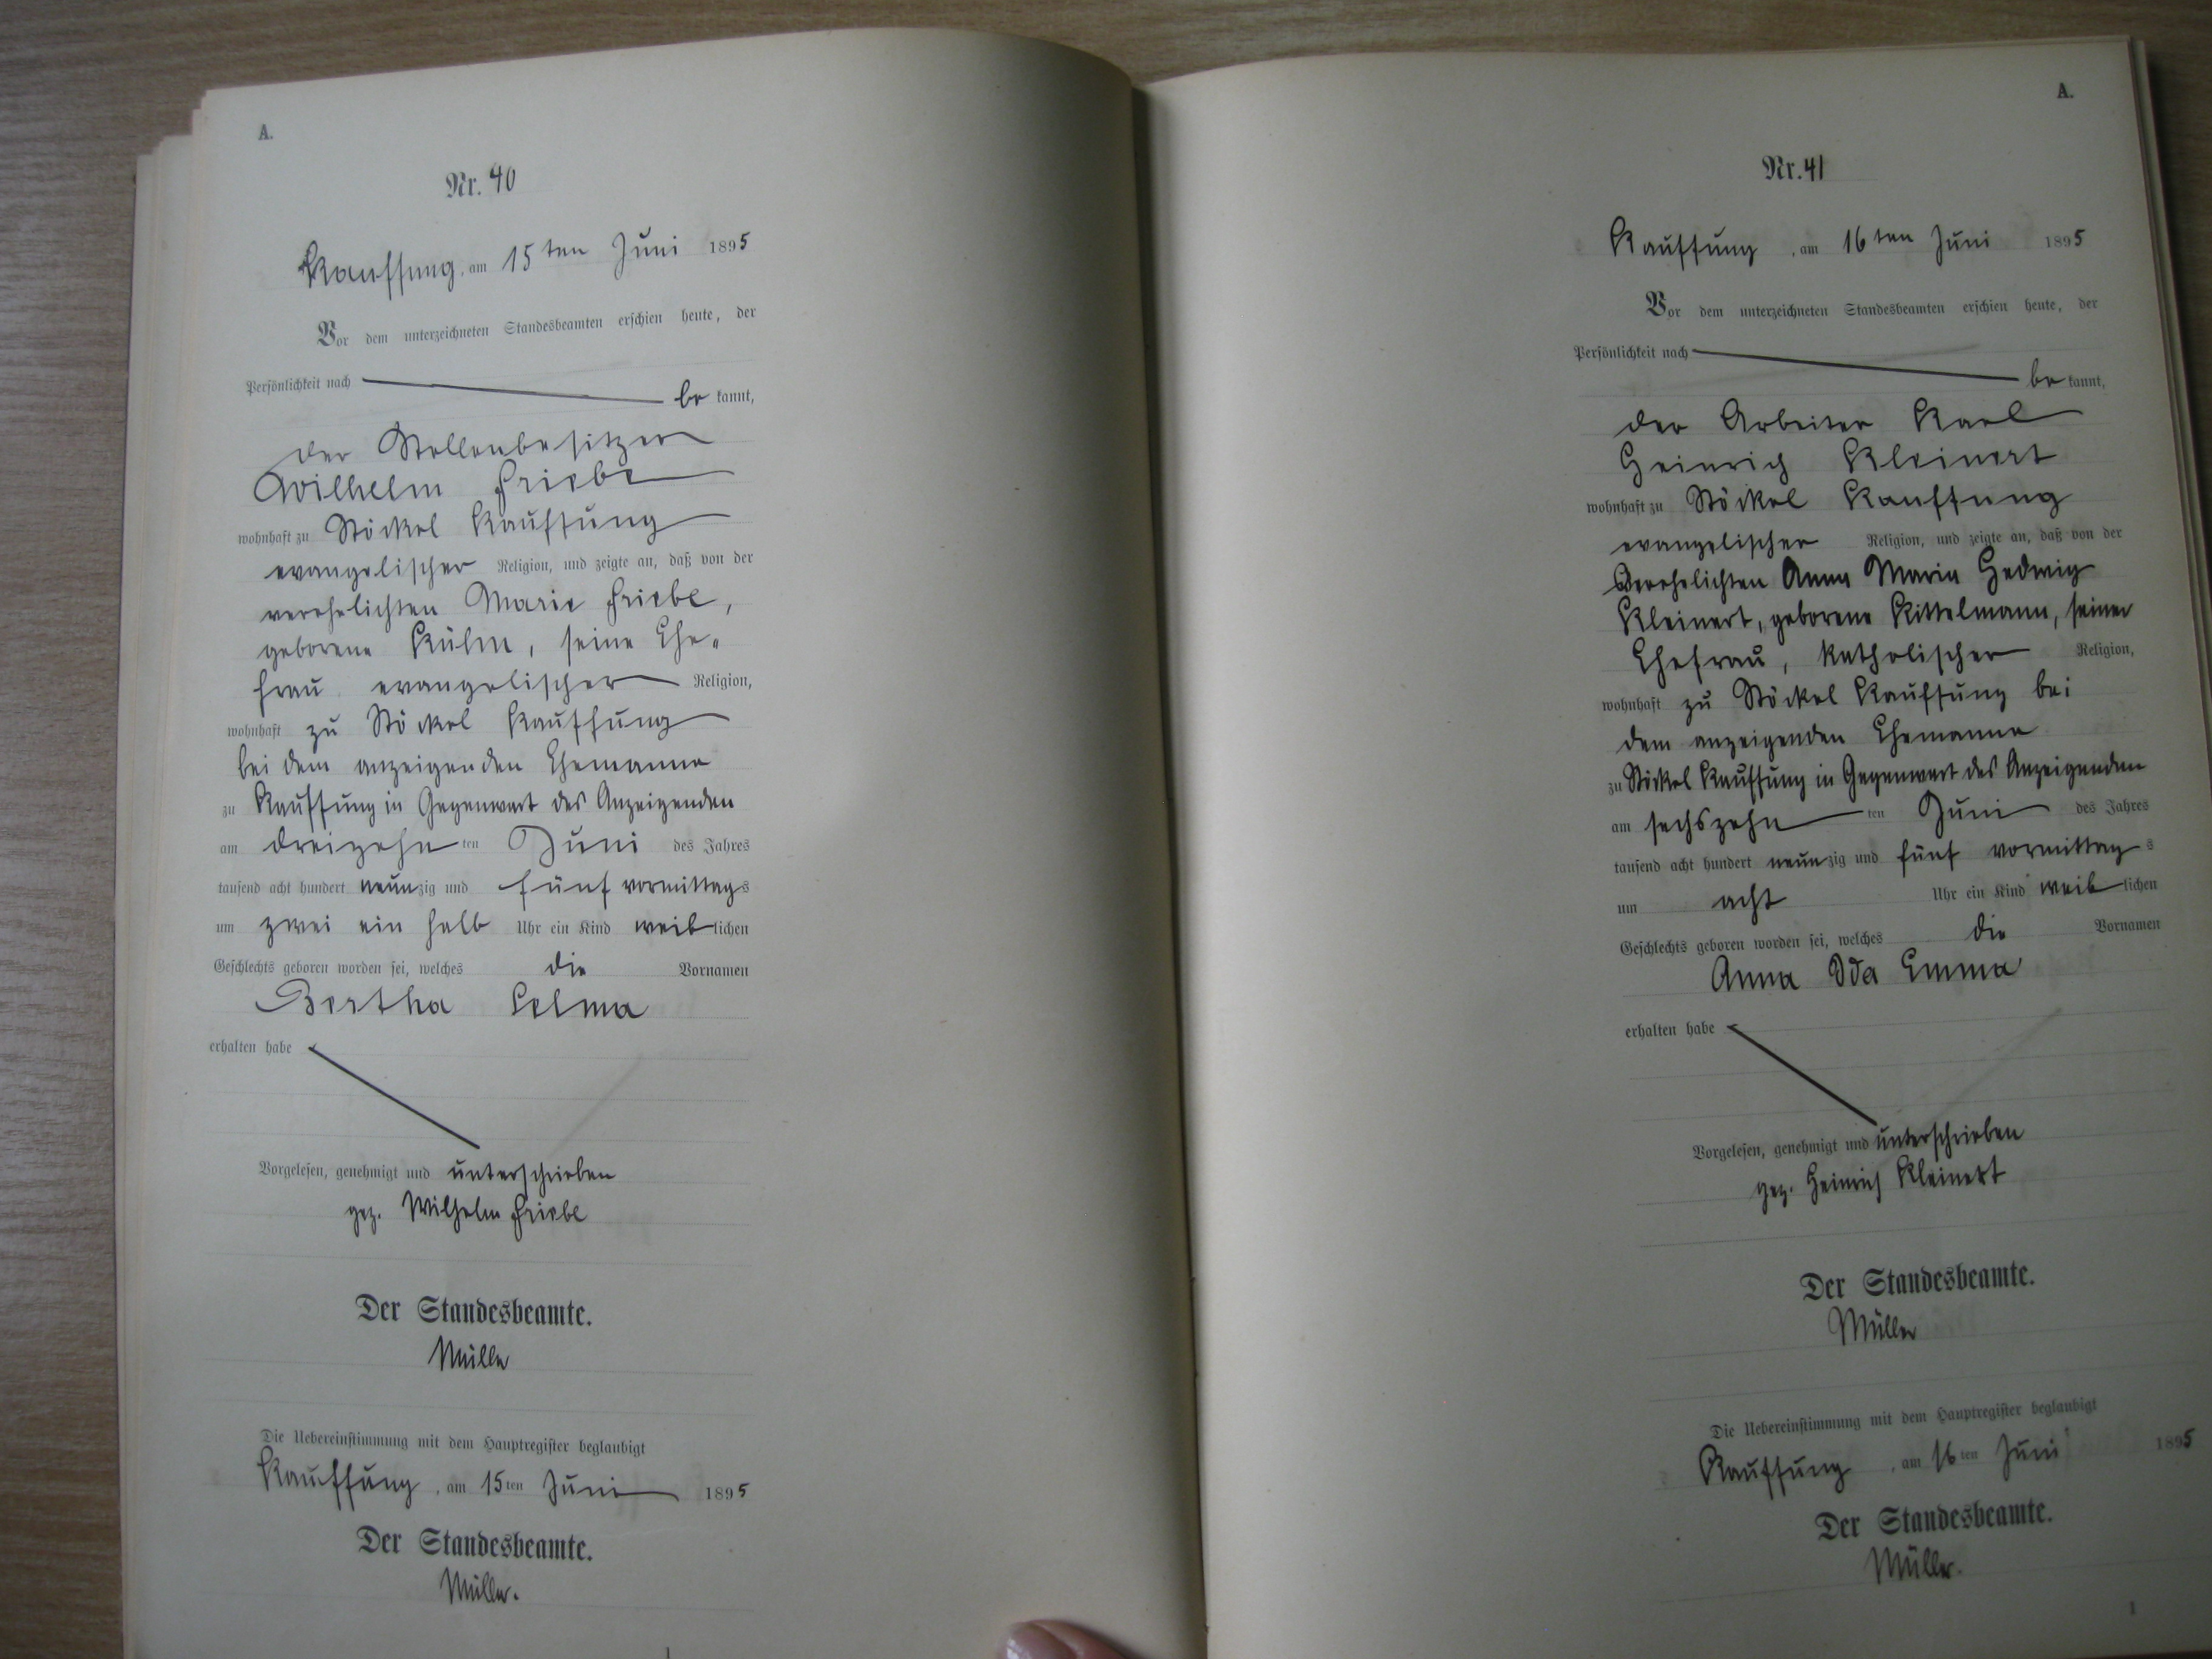 A.
Nr. 40
Kauffung, am 15ten Juni 1895
Vor dem unterzeichneten Standesbeamten erschien heute, der
Persönlichkeit nach
be kannt,
der Stellenbesitzer
Wilhelm Friebe
wohnhaft zu Stöckel Kauffung
evangelischer Religion, und zeigte an, daß von der
verehelichten Marie Friebe,
geborene Kühn, seine Ehe-
frau evangelischer Religion,
wohnhaft zu Stöckel Kauffung
bei dem anzeigenden Ehemanne
zu Kauffung in Gegenwart des Anzeigenden
am dreizehn ten Juni des Jahres
tausend acht hundert neunzig und fünf vormittags
um zwei ein halb Uhr ein Kind weiblichen
Geschlechts geboren worden sei, welches die Vornamen
Bertha Selma
erhalten habe
Vorgelesen, genehmigt und unterschrieben
gez. Wilhelm Friebe
Der Standesbeamte.
Müller
Die Uebereinstimmung mit dem Hauptregister beglaubigt
Kauffung, am 15ten Juni 1895
Der Standesbeamte.
Müller.
A.
Nr. 41
Kauffung, am 16ten Juni 1895
Vor dem unterzeichneten Standesbeamten erschien heute, der
Persönlichkeit nach
be kannt,
der Arbeiter Karl
Heinrich Kleinert
wohnhaft zu Stöckel Kauffung
evangelischer Religion, und zeigte an, daß von der
Verehelichten Anna Maria Hedwig
Kleinert, geborene Kittelmann, seiner
Ehefrau, katholischer Religion,
wohnhaft zu Stöckel Kauffung bei
dem anzeigenden Ehemanne
zu Stöckel Kauffung in Gegenwart des Anzeigenden
am sechszehn ten Juni des Jahres
tausend acht hundert neunzig und fünf vormittags
um acht Uhr ein Kind weiblichen
Geschlechts geboren worden sei, welches die Vornamen
Anna Ida Emma
erhalten habe
Vorgelesen, genehmigt und unterschrieben
gez. Heinrich Kleinert
Der Standesbeamte.
Müller
Die Uebereinstimmung mit dem Hauptregister beglaubigt
Kauffung, am 16ten Juni 1895
Der Standesbeamte.
Müller.
1